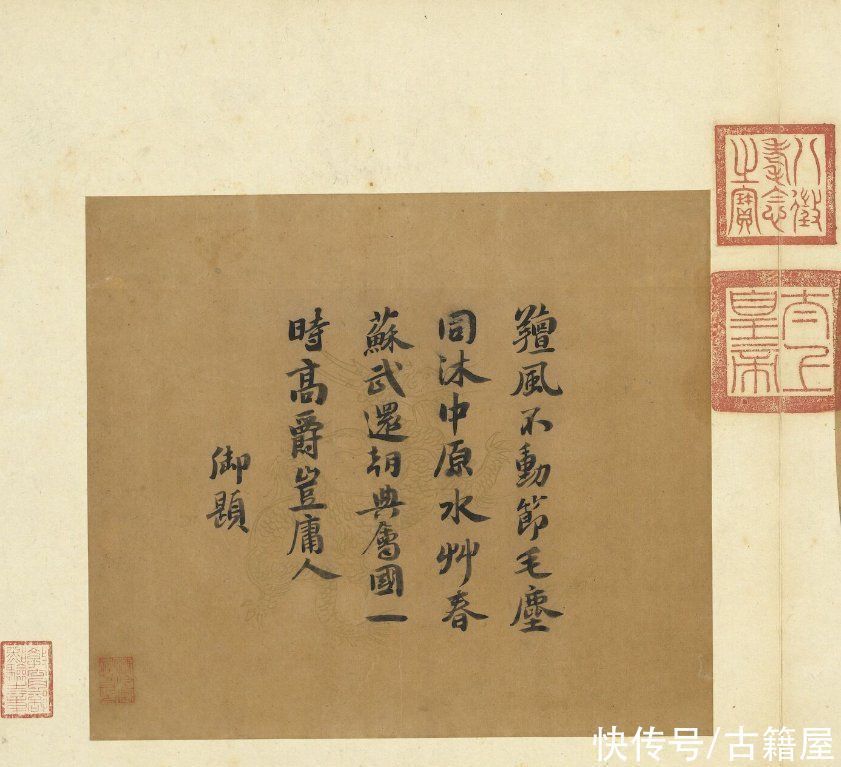 羶風不動節毛塵
同沐中原水艸春
蘇武還朝典屬國一
時高爵豈庸人
御題
八徵耄念之寶
太上皇帝
快传号/古籍屋